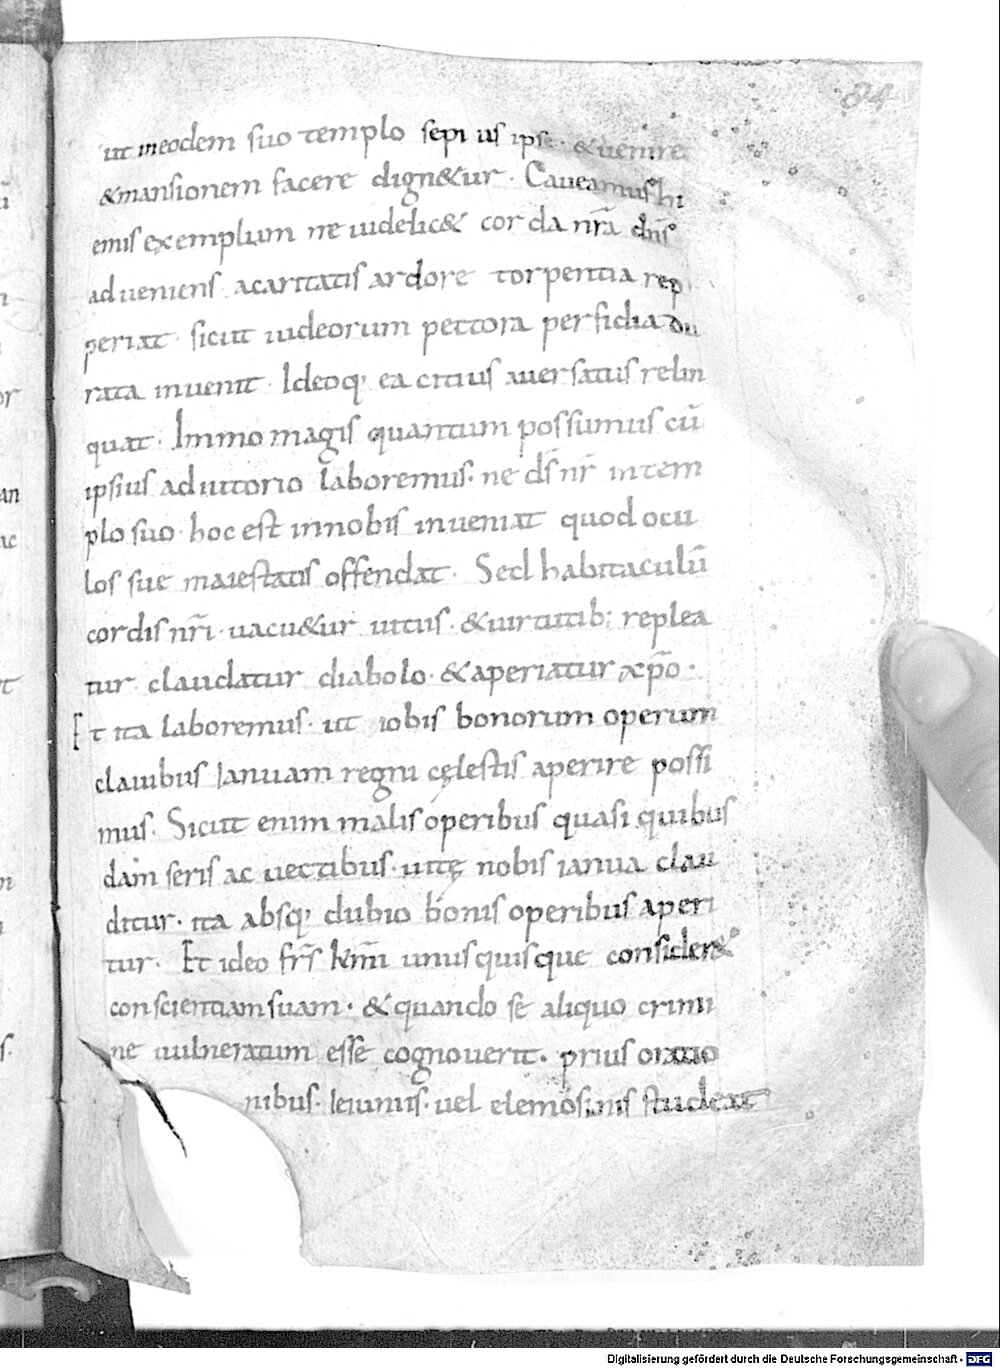 84
ut in eodem suo templo sepius ipse & uenire
& mansionem facere dign&ur . Caueamus hi
emis exemplum ne uidelic& corda nr̄a dn̄s
adueniens a caritatis ardore torpentia rep
periat . sicut iudeorum pectora perfidia du
rata inuenit . Ideoq; ea citius auersatus relin
quat . Immo magis quantum possumus cū
ipsius adiutorio laboremus . ne ds̄ nr̄ in tem
plo suo . hoc est in nobis inueniat quod ocu
los sue maiestatis offendat . Sed habitaculū
cordis nr̄i . uacu&ur uitiis . & uirtutib; replea
tur . claudatur diabolo . & aperiatur xp̄o .
Et ita laboremus . ut nobis bonorum operum
clauibus Ianuam regni cęlestis aperire possi
mus . Sicut enim malis operibus quasi quibus
dam seris ac uectibus . uitę nobis ianua clau
ditur . ita absq; dubio bonis operibus aperi
tur . Et ideo fr̄s kmī unusquisque consider&
conscientiam suam . & quando se aliquo crimi
ne uulneratum esse cognouerit . prius oratio
nibus . Ieiuniis . uel elemosinis studeat
Digitalisierung gefördert durch die Deutsche Forschungsgemeinschaft - DFG